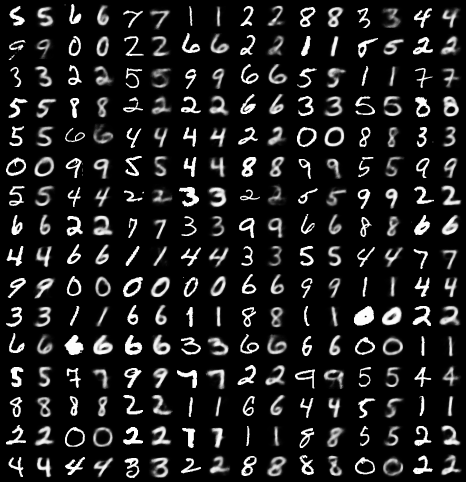 5 5 6 6 7 7 1 1 2 2 8 8 3 3 4 4
9 9 0 0 2 2 6 6 2 2 1 1 5 5 2 2
3 3 2 2 5 5 9 9 6 6 5 5 1 1 7 7
5 5 8 8 2 2 2 2 6 6 3 3 5 5 8 8
5 5 6 6 4 4 4 4 2 2 0 0 8 8 3 3
0 0 9 9 5 5 4 4 8 8 9 9 5 5 9 9
5 5 4 4 2 2 3 3 2 2 5 5 9 9 2 2
6 6 2 2 7 7 3 3 9 9 6 6 8 8 6 6
4 4 6 6 1 1 4 4 3 3 5 5 4 4 7 7
9 9 0 0 0 0 0 0 6 6 9 9 1 1 4 4
3 3 1 1 6 6 1 1 8 8 1 1 0 0 2 2
6 6 6 6 6 6 3 3 6 6 6 6 0 0 1 1
5 5 7 7 9 9 7 7 2 2 9 9 5 5 4 4
8 8 8 8 2 2 1 1 6 6 4 4 5 5 1 1
2 2 0 0 2 2 7 7 1 1 8 8 5 5 2 2
4 4 4 4 3 3 2 2 8 8 8 8 0 0 2 2